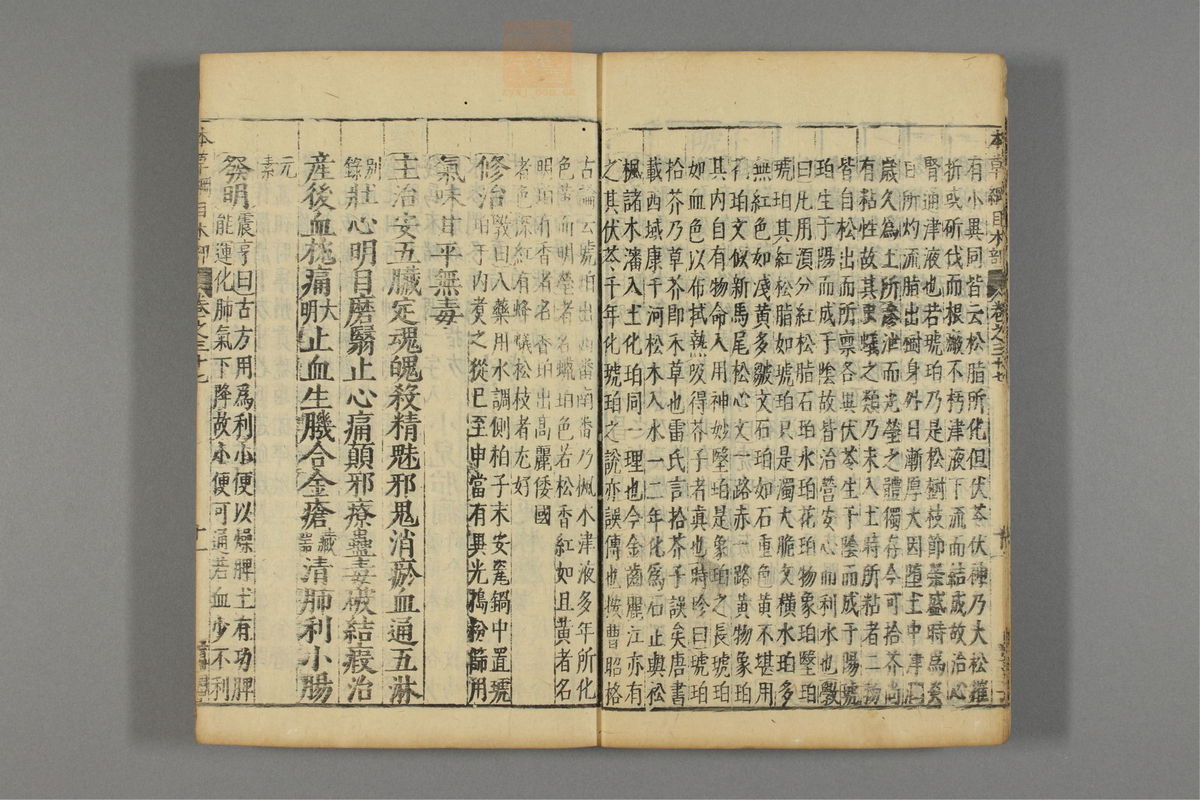 有小異同皆云松脂所化但伏苓伏神乃大松摧
折或斫伐而根瘢不朽津液下流而結成故治心
腎通津液也若琥珀乃是松樹枝節榮盛時爲炎
日所灼流脂出樹身外日漸厚大因墮土中津潤
歲久爲土所滲泄而光瑩之體獨存今可拾芥尚
有粘性故其蟲蟻之類乃未入土時所粘者二物
皆自松出而所稟各異伏苓生于陰而成于陽琥
珀生于陽而成于陰故皆治營安心而利水也斅
曰凡用須分紅松脂石珀水珀花珀物象珀瑿珀
琥珀其紅松脂如琥珀只是濁大脆文橫水珀多
無紅色如淺黃多皺文石珀如石重色黃不堪用
花珀文似新馬尾松心文一路赤一路黃物象珀
其內自有物命入用神妙瑿珀是衆珀之長琥珀
如血色以布拭熱吸得芥子者真也時珍曰琥珀
拾芥乃草芥即禾草也雷氏言拾芥子誤矣唐書
載西域康干河松木入水一二年化爲石正與松
楓諸木瀋入土化珀同一理也今金齒麗江亦有
之其伏苓千年化琥珀之說亦誤傳也按曹昭格
古論云琥珀出西番南番乃楓木津液多年所化
色黃而明瑩者名蠟珀色若松香紅如且黃者名
明珀有香者名香珀出高麗倭國
者色深紅有蜂蟻松枝者尤好
修治斅曰入藥用水調側柏子末安瓷鍋中置琥
珀于內煑之從巳至申當有異光擣粉篩用
氣味甘平無毒
主治安五臟定魂魄殺精魅邪鬼消瘀血通五淋
別錄壯心明目磨翳止心痛顛邪療蠱毒破結瘕治
産後血枕痛大明止血生肌合金瘡藏器清肺利小腸
元素
發明震亨曰古方用爲利小便以燥脾土有功脾
能運化肺氣下降故小便可通若血少不利
本草綱目木部
卷之三十七
本草綱目木部
卷之三十七
十一